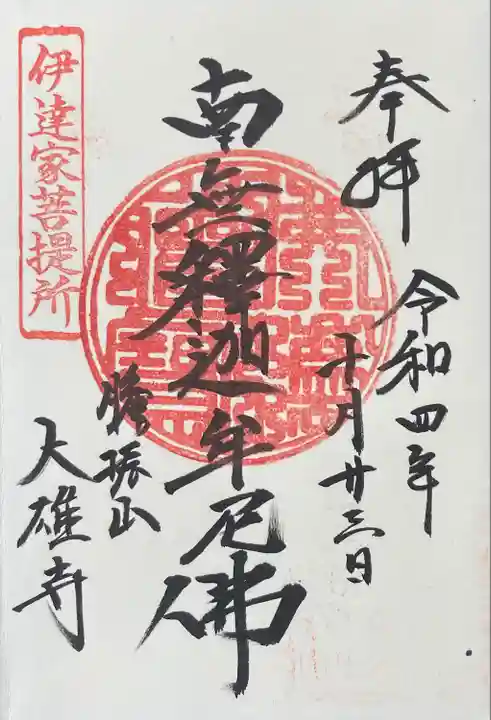 奉拝
令和四年
十月廿三日
南無釋迦牟尼佛
勝振山
大雄寺
伊達家菩提所